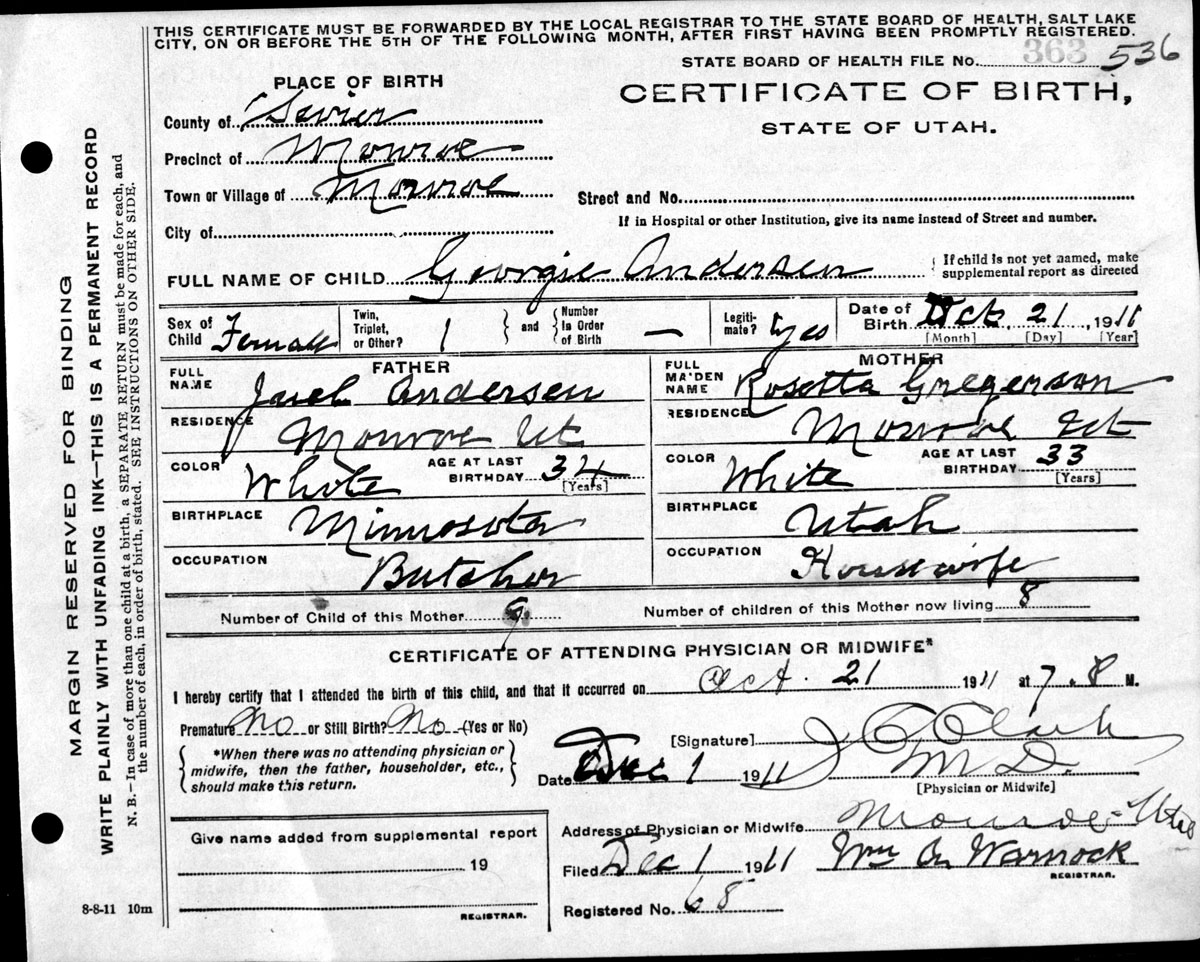 THIS CERTIFICATE MUST BE FORWARDED BY THE LOCAL REGISTRAR TO THE STATE BOARD OF HEALTH, SALT LAKE
CITY, ON OR BEFORE THE 5TH OF THE FOLLOWING MONTH, AFTER FIRST HAVING BEEN PROMPTLY REGISTERED.
STATE BOARD OF HEALTH FILE No. 363 536
PLACE OF BIRTH
CERTIFICATE OF BIRTH,
STATE OF UTAH.
County of Sevier
Precinct of Monroe
Town or Village of Monroe
Street and No.
If in Hospital or other Institution, give its name instead of Street and number.
City of
FULL NAME OF CHILD Georgie Andersen
If child is not yet named, make
supplemental report as directed
Sex of Child Female
Twin, Triplet, or Other? 1
and
Number In Order of Birth —
Legiti-mate? Yes
Date of Birth Oct, 21, 1911
[Month] [Day] [Year]
FATHER
FULL NAME Andersen
RESIDENCE Monroe Ut
COLOR White
AGE AT LAST BIRTHDAY 34
[Years]
BIRTHPLACE Minnesota
OCCUPATION Butcher
MOTHER
FULL MA'DEN NAME Rosetta Gregerson
RESIDENCE Monroe Ut
COLOR White
AGE AT LAST BIRTHDAY 33
[Years]
BIRTHPLACE Utah
OCCUPATION Housewife
Number of Child of this Mother 9
Number of children of this Mother now living 8
CERTIFICATE OF ATTENDING PHYSICIAN OR MIDWIFE*
I hereby certify that I attended the birth of this child, and that it occurred on Oct. 21 1911 at 7. M.
Premature No or Still Birth? No (Yes or No)
*When there was no attending physician or
midwife, then the father, householder, etc.,
should make this return.
[Signature] J C Clark
M D.
[Physician or Midwife]
Date Dec 1 1911
Give name added from supplemental report
19
REGISTRAR.
Address of Physician or Midwife Monroe Utah
Filed Dec 1 1911 Wm A Warnock
REGISTRAR.
Registered No. 68
8-8-11 10m
MARGIN RESERVED FOR BINDING
WRITE PLAINLY WITH UNFADING INK—THIS IS A PERMANENT RECORD
N. B.—In case of more than one child at a birth, a SEPARATE RETURN must be made for each, and
the number of each, in order of birth, stated. SEE INSTRUCTIONS ON OTHER SIDE.